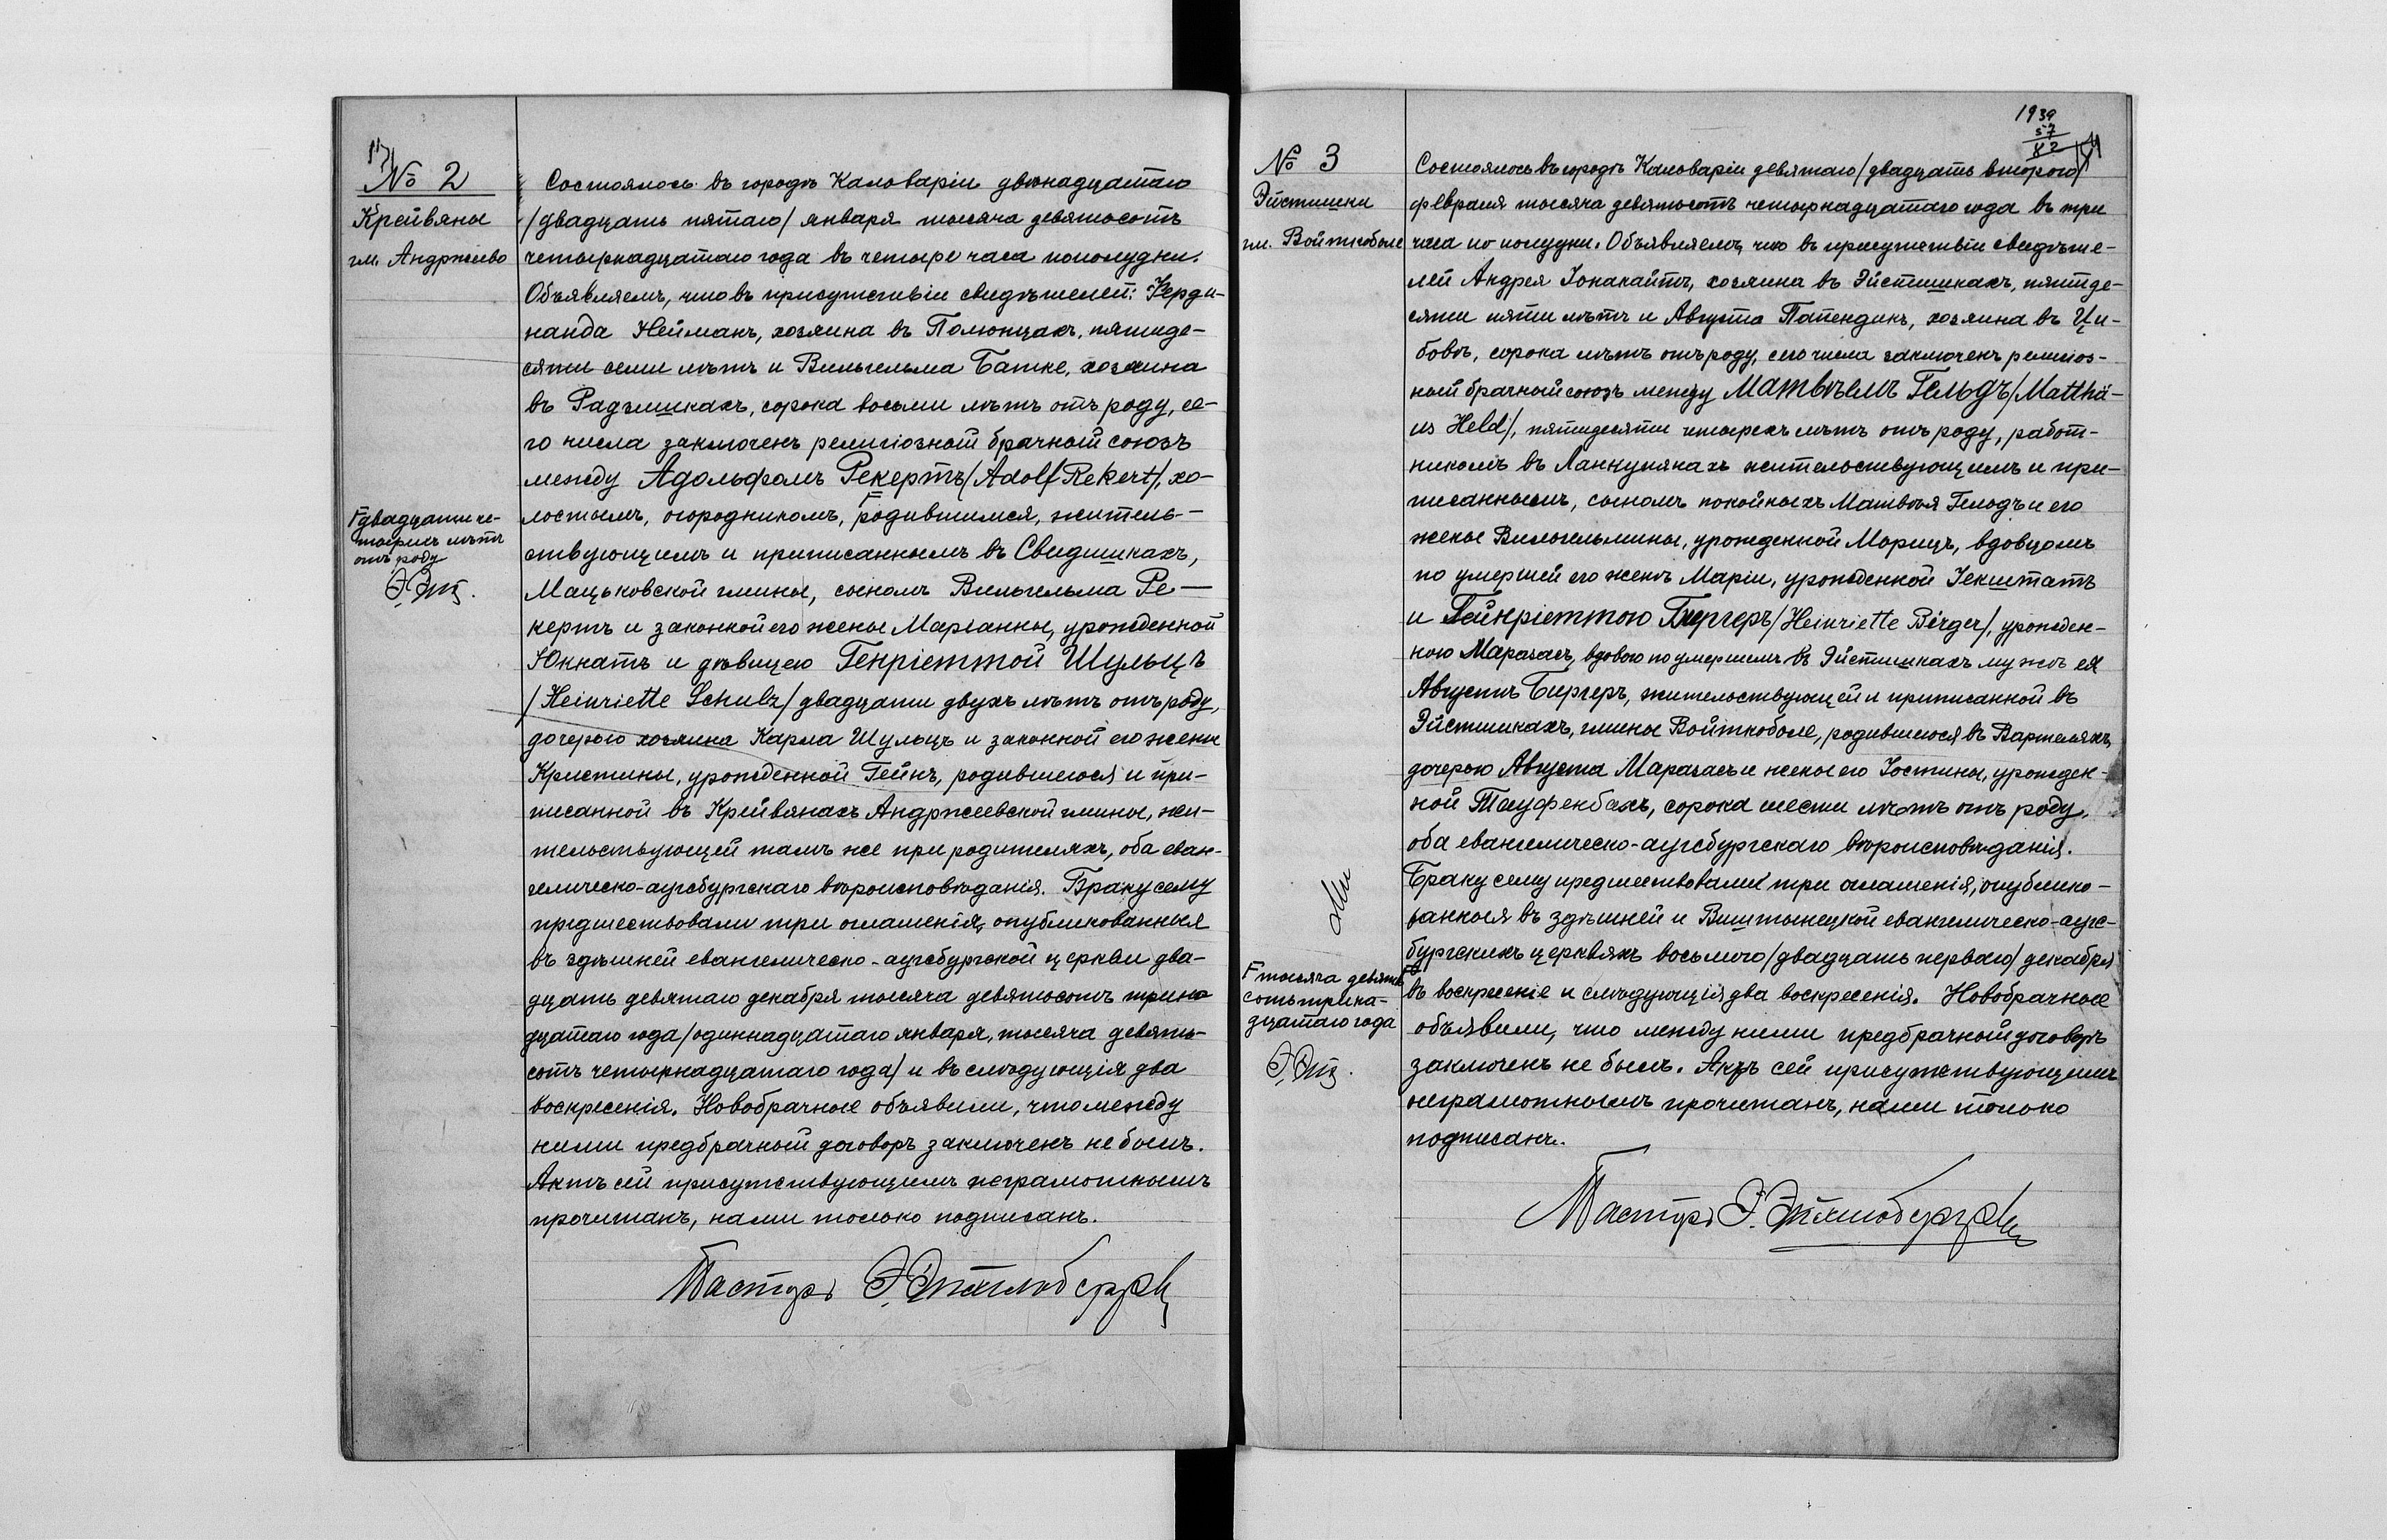 № 2
Крейвяны
гм. Андржеево
Состоялось въ городѣ Кальваріи двѣнадцатаго
/двадцать пятаго/ января тысяча девятьсотъ
четырнадцатаго года въ четыре часа пополудни.
Объявляемъ, что въ присутствіи свидѣтелей: Ферди-
нанда Нейманъ, хозяина въ Полюнцахъ, пятиде-
сяти семи лѣтъ и Вильгельма Батке, хозяина
въ Радзишкахъ, сорока восьми лѣтъ отъ роду, се-
го числа заключенъ религіозный брачный союзъ
между Адольфомъ Рекертъ /Adolf Rekert/, хо-
лостымъ, огородникомъ, Г родившимся, житель-
ствующимъ и приписаннымъ въ Свидишкахъ,
Мацьковской гмины, сыномъ Вильгельма Ре-
кертъ и законной его жены Маріанны, урожденной
Юкнатъ и дѣвицею Генріеттой Шульцъ
/Heinriette Schulz/ двадцати двухъ лѣтъ отъ роду,
дочерью хозяина Карла Шульцъ и законной его жены
Кристины, урожденной Гейнъ, родившеюся и при-
писанной въ Крейвянахъ Андржеевской гмины, жи-
тельствующей тамъ же при родителяхъ, оба еван-
гелическо-аугсбургскаго вѣроисповѣданія. Браку сему
предшествовали три оглашенія, опубликованныя
въ здѣшней евангелическо-аугсбургской церкви два-
дцать девятаго декабря тысяча девятьсотъ трина
дцатаго года /одиннадцатаго января, тысяча девять-
сотъ четырнадцатаго года/ и въ слѣдующія два
воскресенія. Новобрачные объявили, что между
ними предбрачный договоръ заключенъ не былъ.
Актъ сей присутствующимъ неграмотнымъ
прочитанъ, нами только подписанъ.
Г двадцати че-
тырехъ лѣтъ
отъ роду
Пасторъ
1939
57
82
№ 3
Эйстишки
гм. Войткоболе
Состоялось въ городѣ Кальваріи девятаго /двадцать второго/
февраля тысяча девятьсотъ четырнадцатаго года въ три
часа по полудни. Объявляемъ, что въ присутствіи свидѣте-
лей Андрея Іонакайтъ, хозяина въ Эйстишкахъ, пятиде-
сяти пяти лѣтъ и Августа Папендикъ, хозяина въ Ци-
бовѣ, сорока лѣтъ отъ роду, сего числа заключенъ религіоз-
ный брачный союзъ между Матвѣемъ Гельдъ /Matthä-
us Held/, пятидесяти четырехъ лѣтъ отъ роду, работ-
никомъ въ Ланкупянахъ жительствующимъ и при-
писаннымъ, сыномъ покойныхъ Матвѣя Гельдъ и его
жены Вильгельмины, урожденной Морицъ, вдовцомъ
по умершей его женѣ Маріи, урожденной Іекштатъ
и Гейнріеттою Биргеръ /Heinriette Birger/, урожден-
ною Марагасъ, вдовою по умершемъ въ Эйстишкахъ мужѣ ея
Августѣ Биргеръ, жительствующей и приписанной въ
Эйстишкахъ, гмины Войткоболе, родившеюся въ Вартеляхъ,
дочерью Августа Марагасъ и жены его Юстины, урожден-
ной Тауфенбахъ, сорока шести лѣтъ отъ роду,
оба евангелическо-аугсбургскаго вѣроисповѣданія.
Браку сему предшествовали три оглашенія, опублико-
ванныя въ здѣшней и Виштынецкой евангелическо-аугс-
бургскихъ церквяхъ восьмого /двадцать перваго/ декабря Г
въ воскресеніе и слѣдующія два воскресенія. Новобрачные
объявили, что между ними предбрачный договоръ
заключенъ не былъ. Актъ сей присутствующимъ
неграмотнымъ прочитанъ, нами только
подписанъ.
Г тысяча девять
сотъ трина-
дцатаго года
Пасторъ